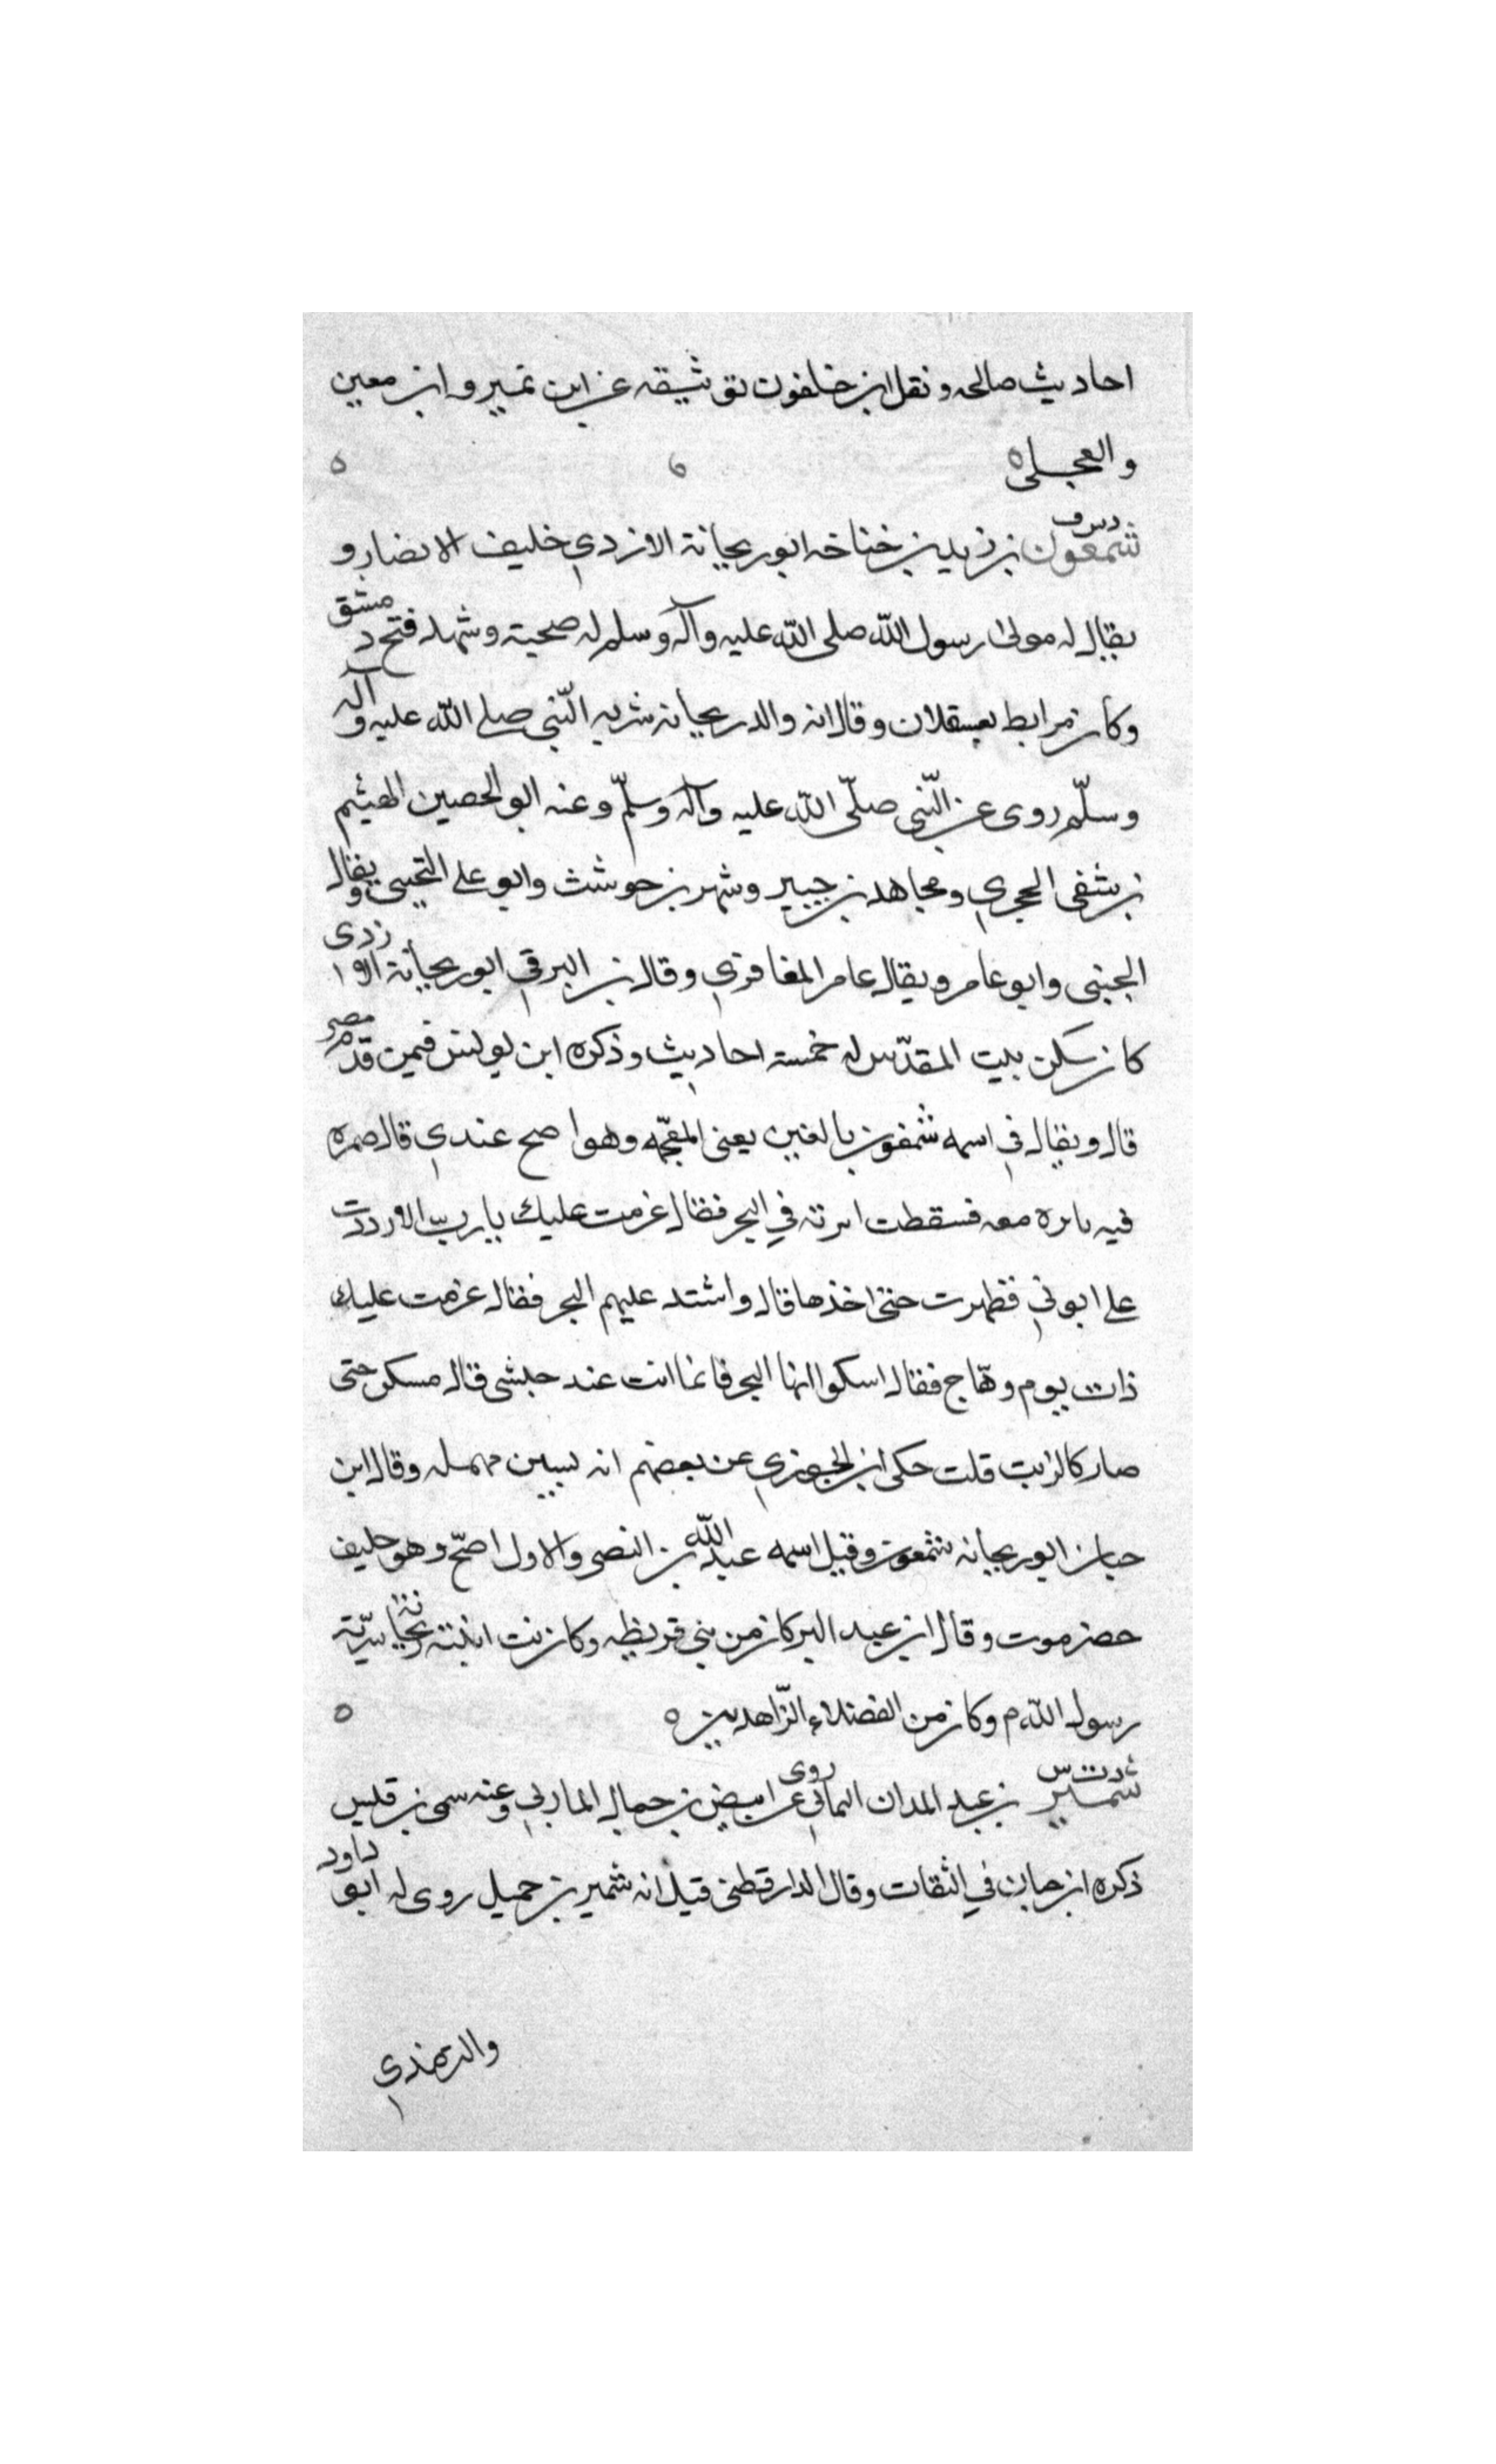 احاديث صالحه ونقل ابن خلفون توثيقه عن ابن نمير وابن معين
والعجلي ٥
شمعون بن زيد بن خنافه ابو ريحانة الازدي خليف الانصار و
يقال له مولى رسول الله صلى الله عليه وآله وسلم له صحبة وشهد فتح دمشق
وكان مرابط بعسقلان وقال انه والد ريحانه سريه النّبي صلى الله عليه وآله
وسلّم روى عن النّبي صلّى الله عليه وآله وسلّم وعنه ابو الحصين الهيثم
بن شفى الحجري ومجاهد بن جبير وشهر بن حوشب وابو على التجيبى ويقال
الجنبى وابو عامر ويقال عامر المغافري وقال بن البرقي ابو ريحانة الازدى
كان سكن بيت المقدّس له خمسة احاديث وذكره ابن يونس فيمن قدم مصر
قال ويقال في اسمه شمغون بالغين يعنى المعجّمه وهو اصح عندي قال ضمره
فيه معه فسقطت ابرته في البحر فقال عزمت عليك يارب الا رددت
على ابرتي فظهرت حتى اخذها قال واشتد عليهم البحر فقال عزمت عليك
ذات يوم وهّاج فقال اسكن ايها البحر فانما انت عند حبشى قال فسكن حتى
صار كالزيت قلت حكى ابن الجوزي عن بعضهم انه بسين مهمله وقال ابن
حبان ابو ريحانه شمعون وقيل اسمه عبد الله بن النضر والاول اصحّ وهو حليف
حضرموت وقال ابن عبد البر كان من بني قريظه وكانت ابنته ريحانة سرّية
رسول الله م وكان من الفضلاء الزّاهدين ٥
شمير بن عبد المدان اليماني روى عن ابيض بن حمال الماربي وعنه سمى بن قيس
ذكره ابن حبان في الثقات وقال الدارقطنى قيل انه شمير بن حميل روى له ابو داود
والترمذي